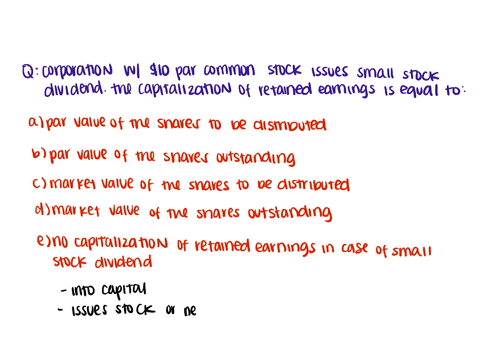 Q: corporation w/ $10 par common stock issues small stock
dividend. the capitalization of retained earnings is equal to:
a) par value of the shares to be distributed
b) par value of the shares outstanding
c) market value of the shares to be distributed
d) market value of the shares outstanding
e) no capitalization of retained earnings in case of small
stock dividend
- into capital
- issues stock or ne